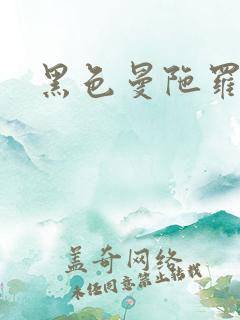 黑色曼陀罗
盖奇网络
未经同意禁止转载